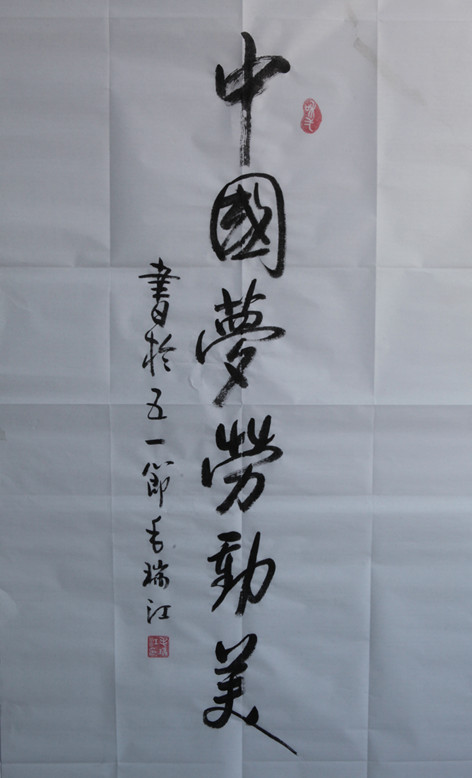 中國夢勞動美
書於五一節毛瑞江